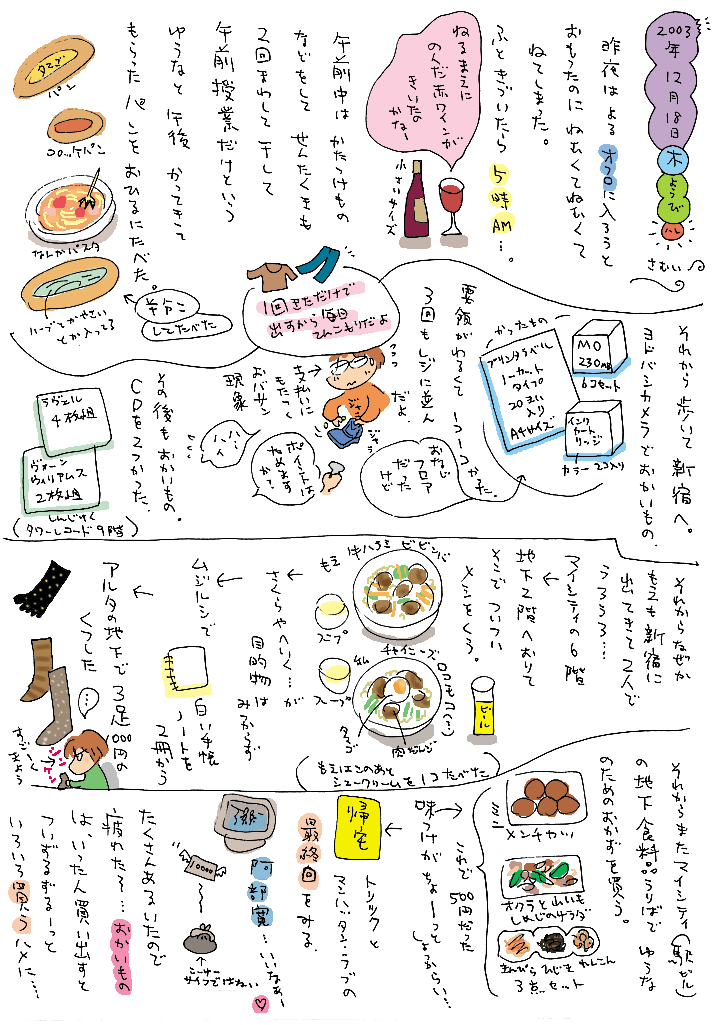 2003年 12月18日
木
ようび
ハレ
さむい
昨夜は よる オフロに入ろうと
おもうたのに ねむくてねむくて
ねてしまった。
ふと きづいたら 5時AM…。
ねるまえに
のんだ赤ワインが
きいたの
かなー
小さいサイズ
午前中は かたづけもの
などをして せんたくきも
2回まわして 干して
午前授業だけという
ゆうなと 午後 かってきて
もらった パンを おひるにたべた。
タマゴ
パン
コロッケパン
なんかパスタ
ハーブとかやさい
とか入ってる
半分こ
してたべた
1回きただけで
出すから毎日
てんこもりだよ
それから 歩いて 新宿へ。
ヨドバシカメラで おかいもの。
かったもの
MO
230MB
6コセット
プリンタラベル
1ーカット
タイプ
20まい
入り
A4サイズ
インク
カート
リッジ
カラー 2コ入り
要領がわるくて 1コ1コかった。
おなじ
フロア
だった
けど
3回もレジに並んだよ。
支払に
もたつく
おバサン
現象
ポイントは
やめます
か?
ハ…
ハイ
その後もおかいもの。
CDを2つかった。
ラヴェル
4枚組
ヴォーン
ウィリアムス
2枚組
しんじゅく
(タワーレコード9階)
それからなぜか
もえも新宿に
出てきて 2人で
うろうろ…
マイシティの6階
地下2階へおりて
そこで ついつい
メシをくう。
もえ
牛ハラミ ビビンバ
スープ
私
チャイニーズ
ロコモコ(?)
スープ
タマゴ
肉だんご
ビール
(もえはこのあと
シュークリームを1コたべた)
さくらやへいく…が
目的物は
みつからず
ムジルシで
白い手帳
ノートを
2冊かう
アルタの地下で 3足1000円の
くつした
…
すごーく
きよう
それからまた マイシティ(駅ビル)
の地下食料品うりばで ゆうな
のためのおかずを買う。
ミニ
メンチカツ
オクラと山いも
しめじのサラダ
きんぴら ひじき れんこん
3点セット
これで500円だった
味つけがちょーっと しょっからい…
帰宅
トリックと
マンハッタンラブの
最終回をみる。
阿部寛…いいなぁー
たくさんあるいたので
疲れたろ… おかいもの
は、いったん買い出すと
ついずるずるーっと
いろいろ買うハメに…